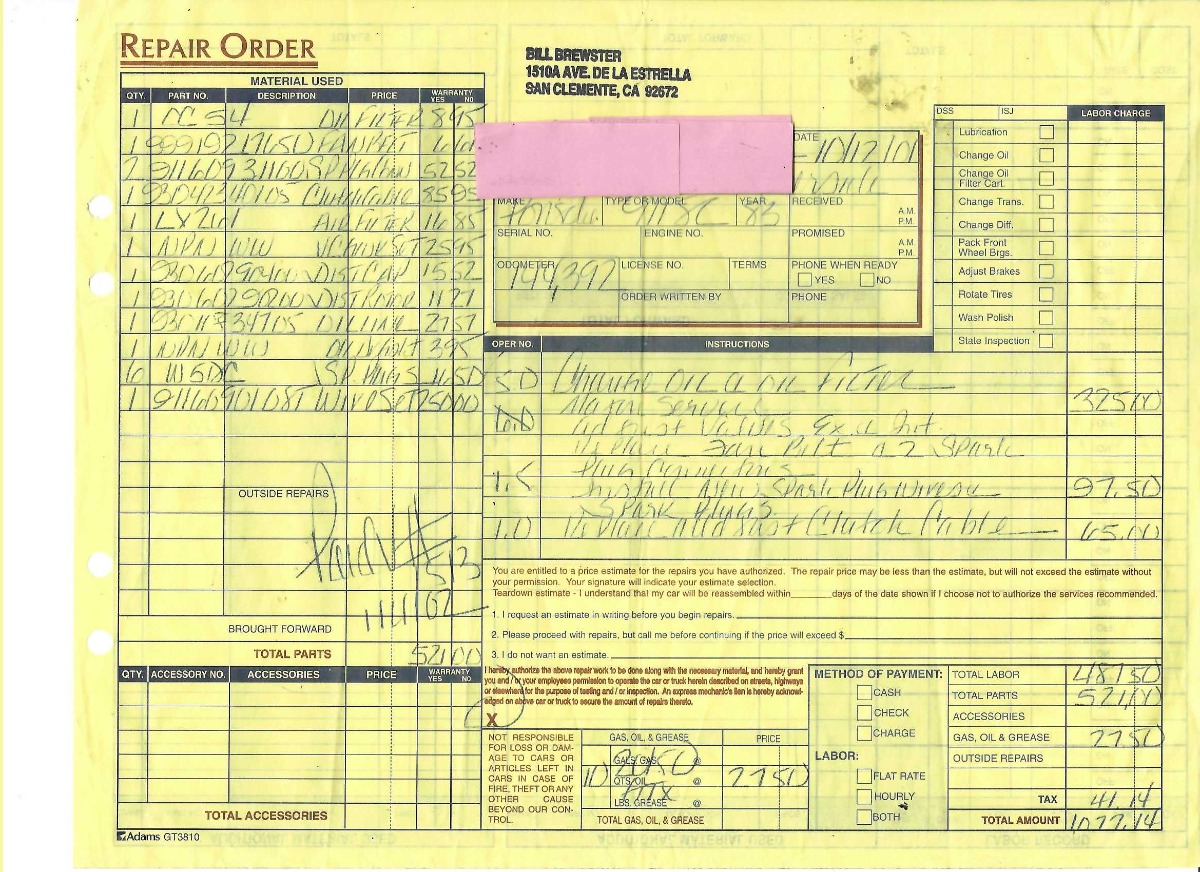 REPAIR ORDER
BILL BREWSTER
1510A AVE. DE LA ESTRELLA
SAN CLEMENTE, CA 92672
MATERIAL USED
QTY. PART NO. DESCRIPTION PRICE WARRANTY YES NO
1 OC 54 OIL FILTER 8 95
1 99919217650 FAN BELT
2 91160931160 52 52
1 Clutch Cable 85 95
1 AIR FILTER 16 85
1 NPN WW 25 95
1 DIST CAP 15 52
1 11 27
1 OIL LINE 27 57
1 NPN WW 3 95
6 W5DC SP. Plugs 16 50
1 WIRE SET 250 00
OUTSIDE REPAIRS
Paid
513
1/1/02
BROUGHT FORWARD
TOTAL PARTS 521 00
QTY. ACCESSORY NO. ACCESSORIES PRICE WARRANTY YES NO
TOTAL ACCESSORIES
Adams GT3810
DATE
10/12/01
MAKE TYPE OR MODEL YEAR RECEIVED A.M. P.M.
Porsche 911 SC 83
SERIAL NO. ENGINE NO. PROMISED A.M. P.M.
ODOMETER LICENSE NO. TERMS PHONE WHEN READY
144,392 YES NO
ORDER WRITTEN BY PHONE
DSS ISJ LABOR CHARGE
Lubrication
Change Oil
Change Oil Filter Cart.
Change Trans.
Change Diff.
Pack Front Wheel Brgs.
Adjust Brakes
Rotate Tires
Wash Polish
State Inspection
OPER NO. INSTRUCTIONS
5.0 Change OIL & OIL FILTER 325 00
Major Service
adjust Valves Ex. & Int.
Replace Fan Belt & 2 Spark
Plug Connectors
1.5 Install New Spark Plug Wires & 97.50
Spark Plugs
1.0 Replace Adjust Clutch Cable 65.00
You are entitled to a price estimate for the repairs you have authorized. The repair price may be less than the estimate, but will not exceed the estimate without
your permission. Your signature will indicate your estimate selection.
Teardown estimate - I understand that my car will be reassembled within______days of the date shown if I choose not to authorize the services recommended.
1. I request an estimate in writing before you begin repairs.
2. Please proceed with repairs, but call me before continuing if the price will exceed $
3. I do not want an estimate.
I hereby authorize the above repair work to be done along with the necessary material, and hereby grant
you and / or your employees permission to operate the car or truck herein described on streets, highways
or elsewhere for the purpose of testing and / or inspection. An express mechanic's lien is hereby acknowl-
edged on above car or truck to secure the amount of repairs thereto.
X
NOT RESPONSIBLE
FOR LOSS OR DAM-
AGE TO CARS OR
ARTICLES LEFT IN
CARS IN CASE OF
FIRE, THEFT OR ANY
OTHER CAUSE
BEYOND OUR CON-
TROL.
GAS, OIL, & GREASE PRICE
GALS. GAS @
20/50
10 QTS. OIL @ 27 50
LBS. GREASE @
TOTAL GAS, OIL, & GREASE
METHOD OF PAYMENT:
CASH
CHECK
CHARGE
LABOR:
FLAT RATE
HOURLY
BOTH
TOTAL LABOR 487 50
TOTAL PARTS 521.00
ACCESSORIES
GAS, OIL & GREASE 27 50
OUTSIDE REPAIRS
TAX 41.14
TOTAL AMOUNT 1077.14